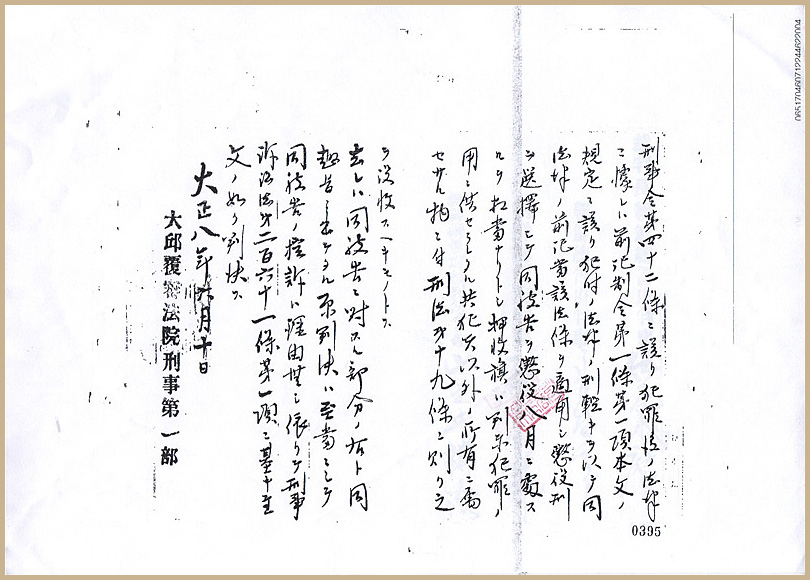 刑事令第四十二條ニ該リ犯罪後ノ法律
ニ據レハ前記制令第一條第一項本文ノ
規定ニ該リ犯時ノ法律ノ刑輕キヲ以テ同
法律ノ前記當該法條ヲ適用シ懲役刑
ヲ選擇シテ同被告ヲ懲役八月ニ處ス
ヘク押收旗ハ判示犯罪ノ
用ニ供セラレタル共犯者以外ノ所有ニ屬
セサル物ニ付刑法第十九條ニ則リ之
ヲ沒收スヘキモノトス
去レハ同被告ニ對スル部分ノ右ト同
趣旨ニ出テタル原判決ハ至當ニシテ
同被告ノ控訴ハ理由無シ依リテ刑事
訴訟法第二百六十一條第一項ニ基キ主
文ノ如ク判決ス
大正八年 月十日
大邱覆審法院刑事第一部
0395
0651704607122446 2004